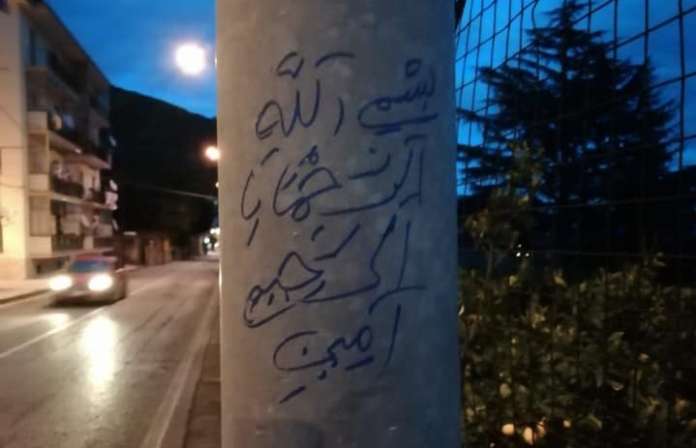 بسم الله
الرحمان
الرحيم
آمين